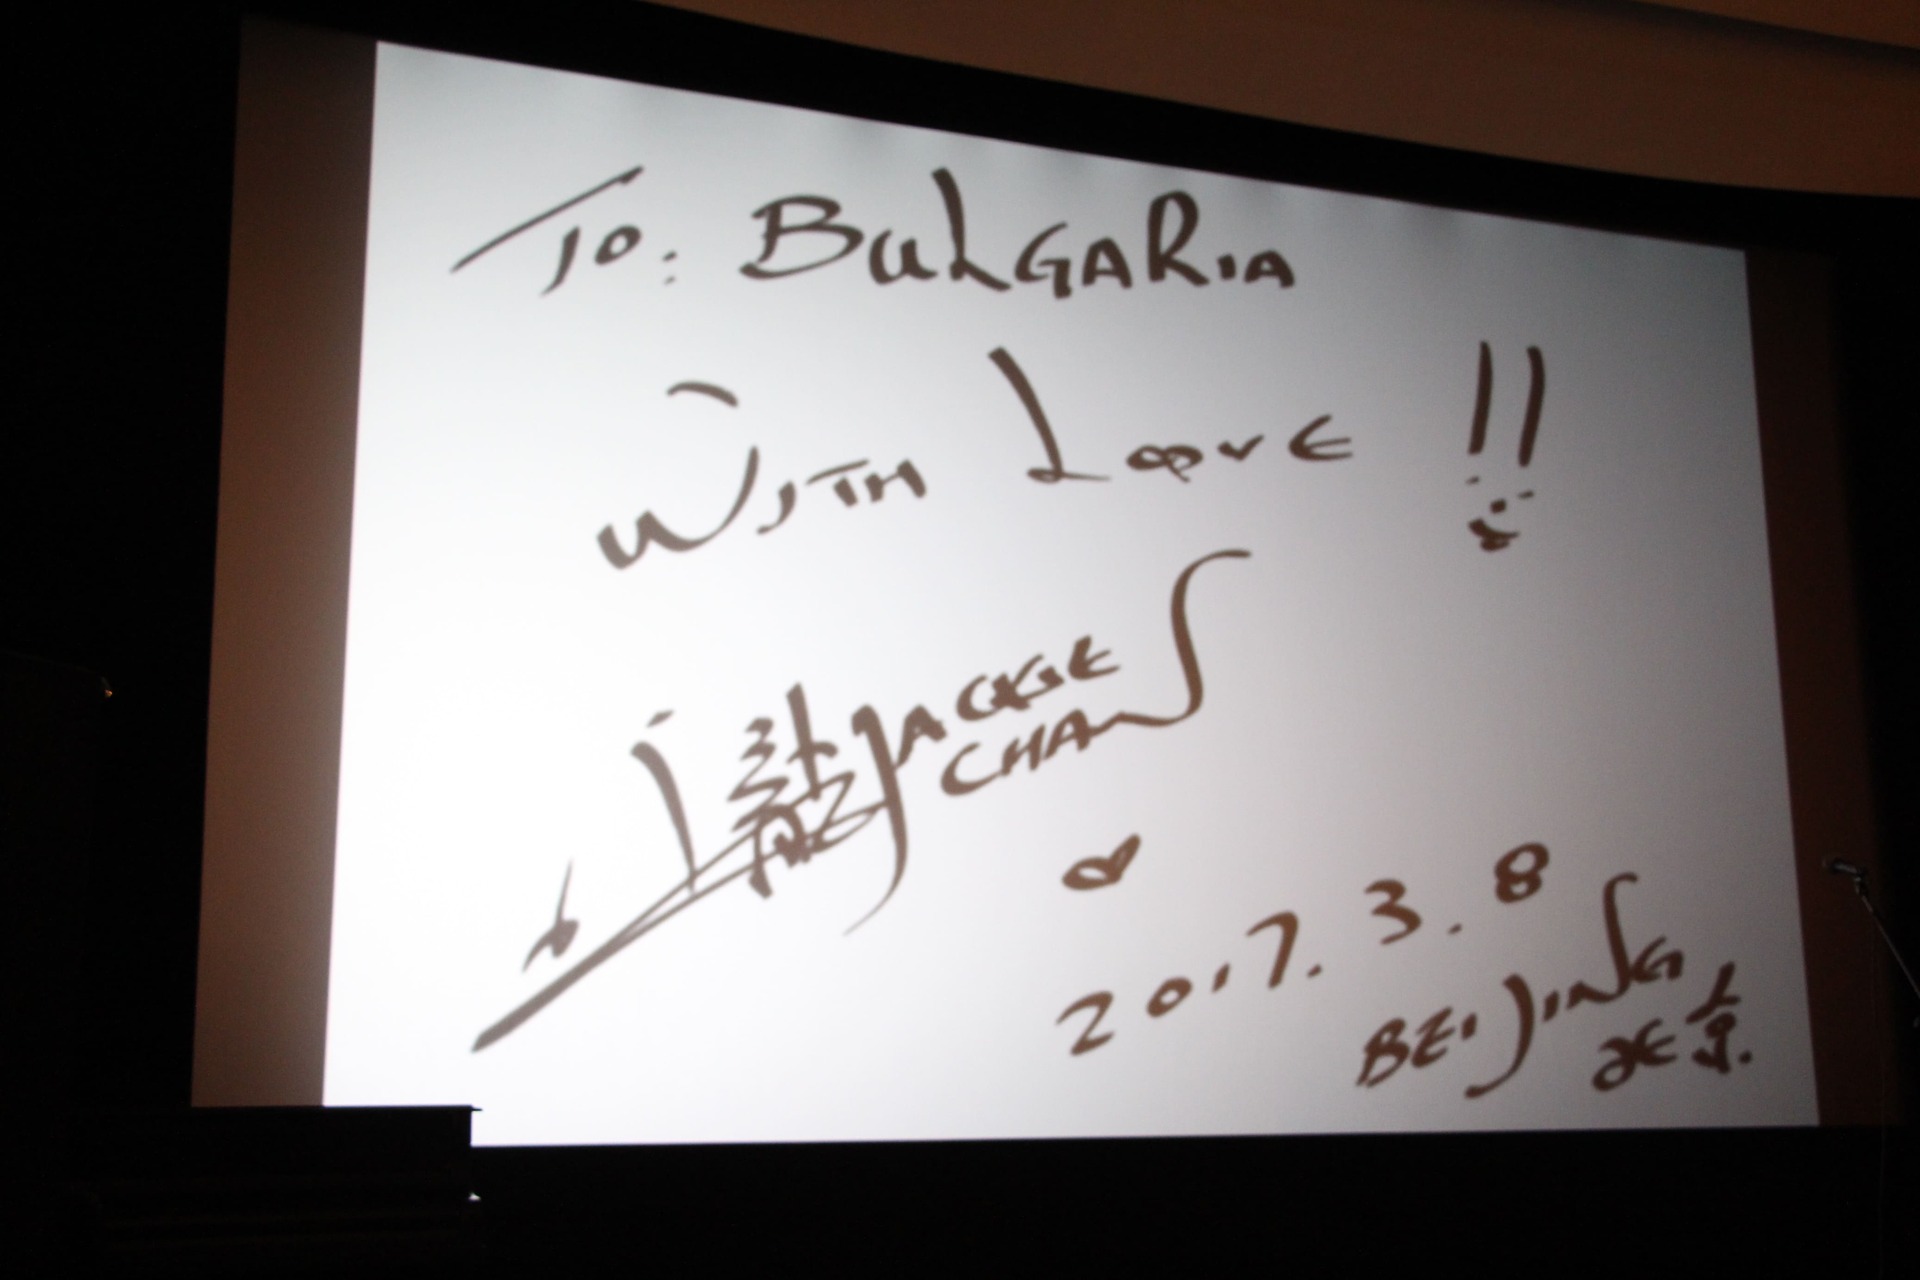 To: BULGARIA
WITH LOVE !!
成龍 JACKIE
CHAN
2017.3.8
BEIJING
北京.